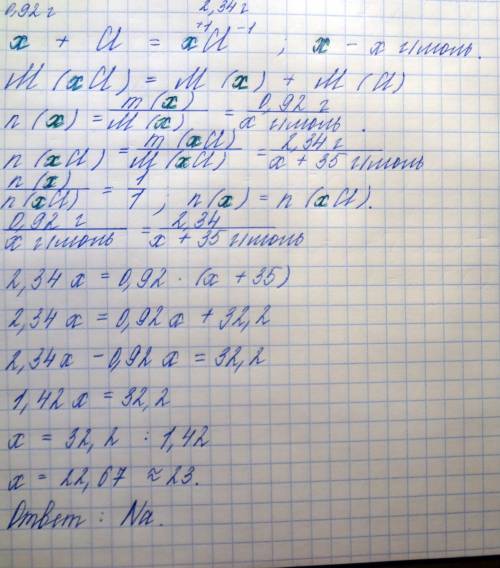 0,92 г 2,34 г
x + Cl = x⁺¹Cl⁻¹ ; x – x г/моль.
M (xCl) = M (x) + M (Cl)
n (x) = m (x) / M (x) = 0,92 г / x г/моль .
n (xCl) = m (xCl) / M (xCl) = 2,34 г / x + 35 г/моль
n (x) / n (xCl) = 1 / 1 ; n (x) = n (xCl).
0,92 г / x г/моль = 2,34 / x + 35 г/моль
2,34 x = 0,92 · (x + 35)
2,34 x = 0,92 x + 32,2
2,34 x – 0,92 x = 32,2
1,42 x = 32,2
x = 32,2 : 1,42
x = 22,67 ≈ 23.
Ответ : Na.